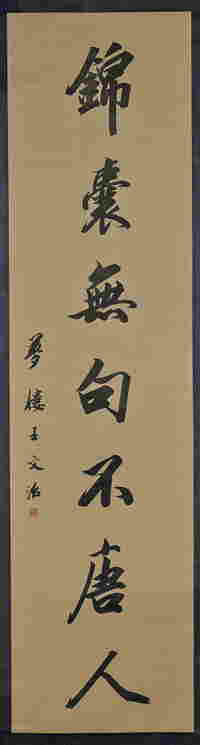 錦囊無句不唐人
夢樓王文治